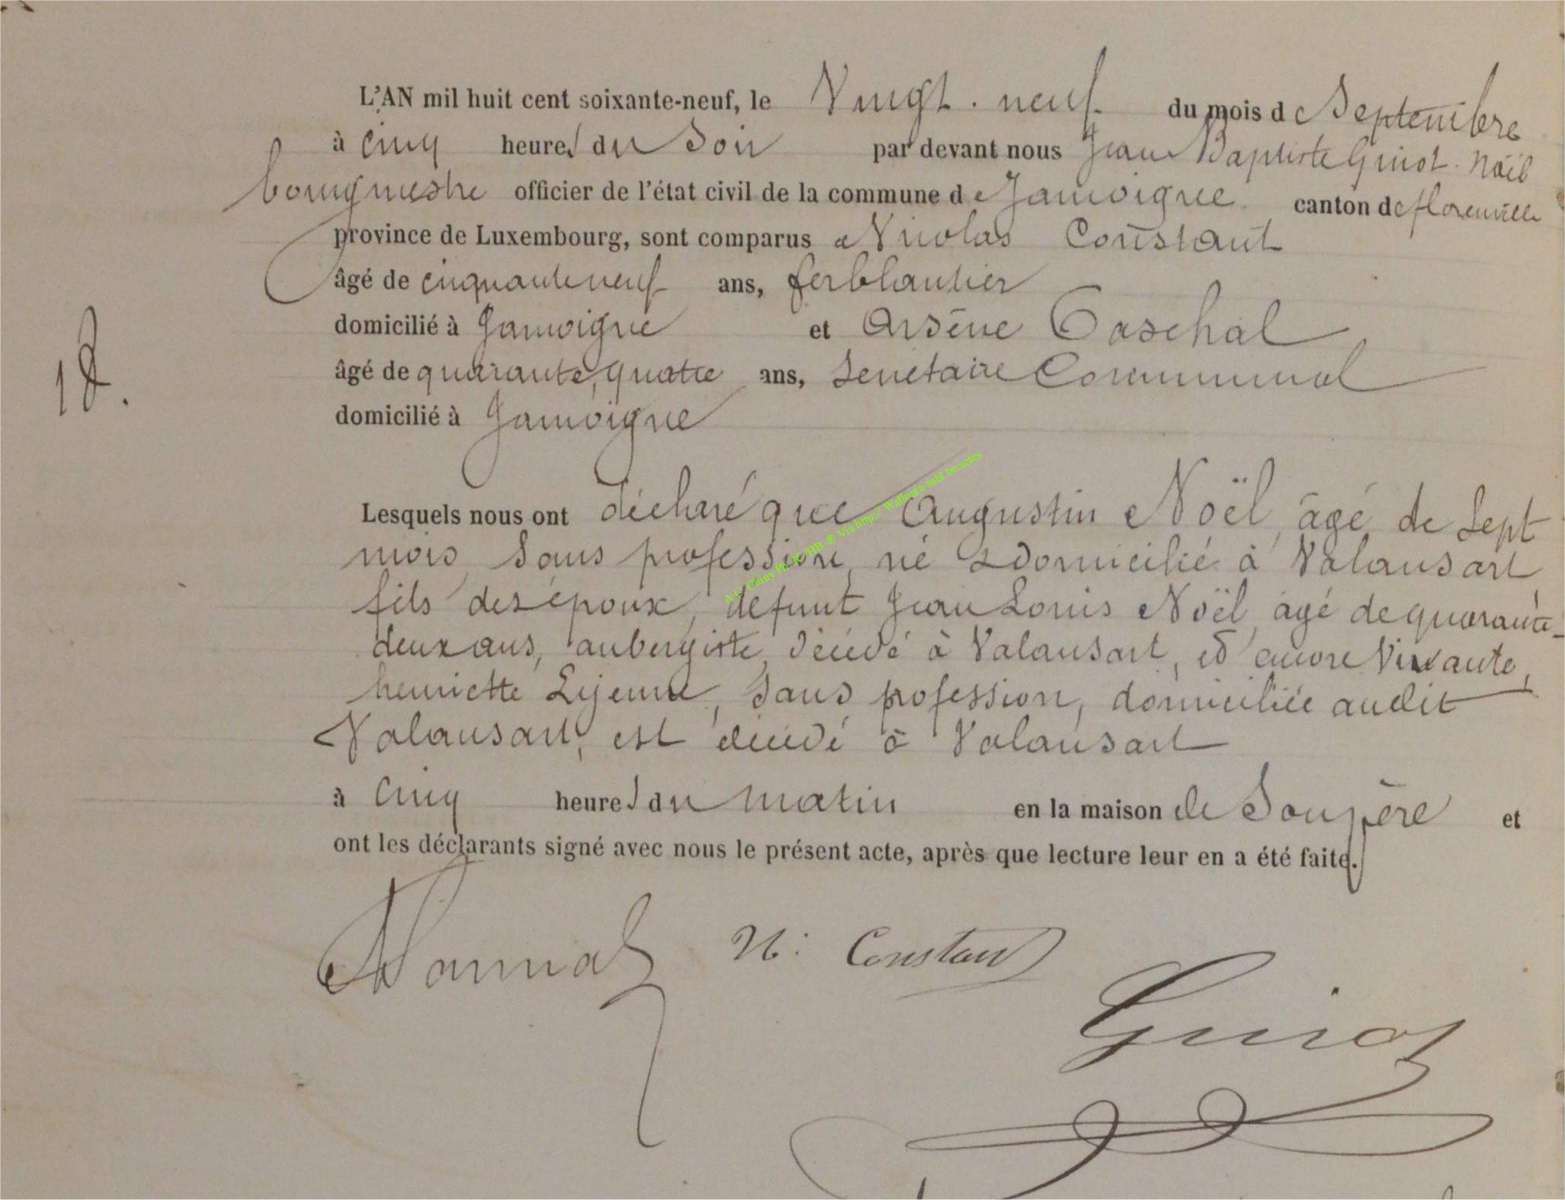 L'AN mil huit cent soixante-neuf, le Vingt-neuf du mois de Septembre
à cinq heures du Soir par devant nous Jean Baptiste Guiot-Noël
bourgmestre officier de l'état civil de la commune de Jamoigne canton de florenville
province de Luxembourg, sont comparus Nicolas Constant
âgé de cinquante neuf ans, ferblantier
domicilié à Jamoigne et Arsène
18.
âgé de quarante, quatre ans, Secrétaire Communal
domicilié à Jamoigne
Lesquels nous ont déclaré que Augustin Noël, âgé de Sept
mois, Sans profession, né & domicilié à Valansart
fils des époux, défunt Jean Louis Noël, âgé de quarante-
deux ans, aubergiste, décédé à Valansart, et encore Vivante,
henriette Lejeune, Sans profession, domiciliée audit
Valansart, est décédé à Valansart
à cinq heures du matin en la maison de Son père et
ont les déclarants signé avec nous le présent acte, après que lecture leur en a été faite.
N: Constant
Guiot